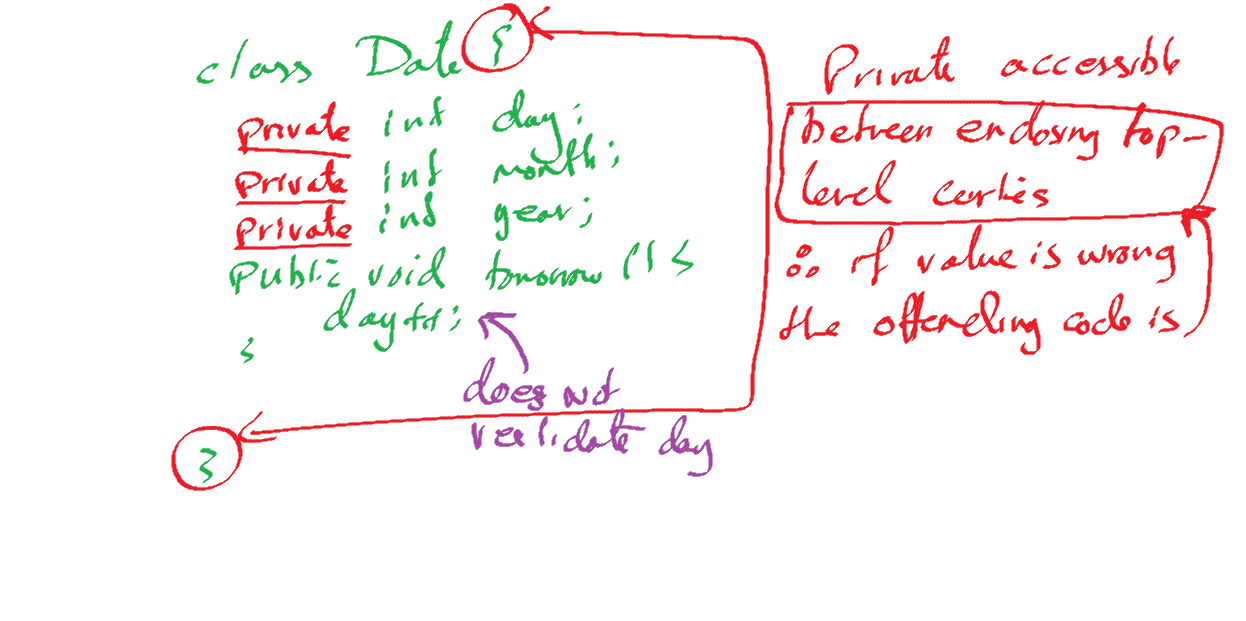 class Date {
private int day;
private int month;
private int year;
public void tomorrow () {
day++;
}
}
does not
validate day
Private accessible
between enclosing top-
level curlies
∴ if value is wrong
the offending code is